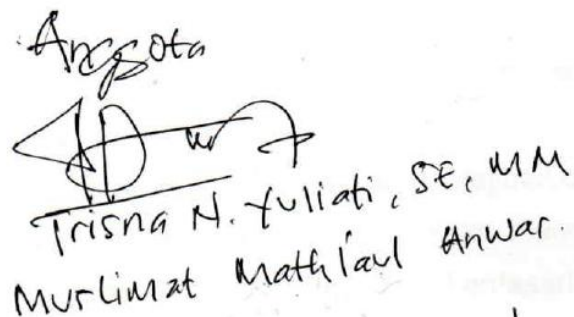 Anggota
Trisna N. Yuliati, SE, MM
Muslimat Mathlaul Anwar